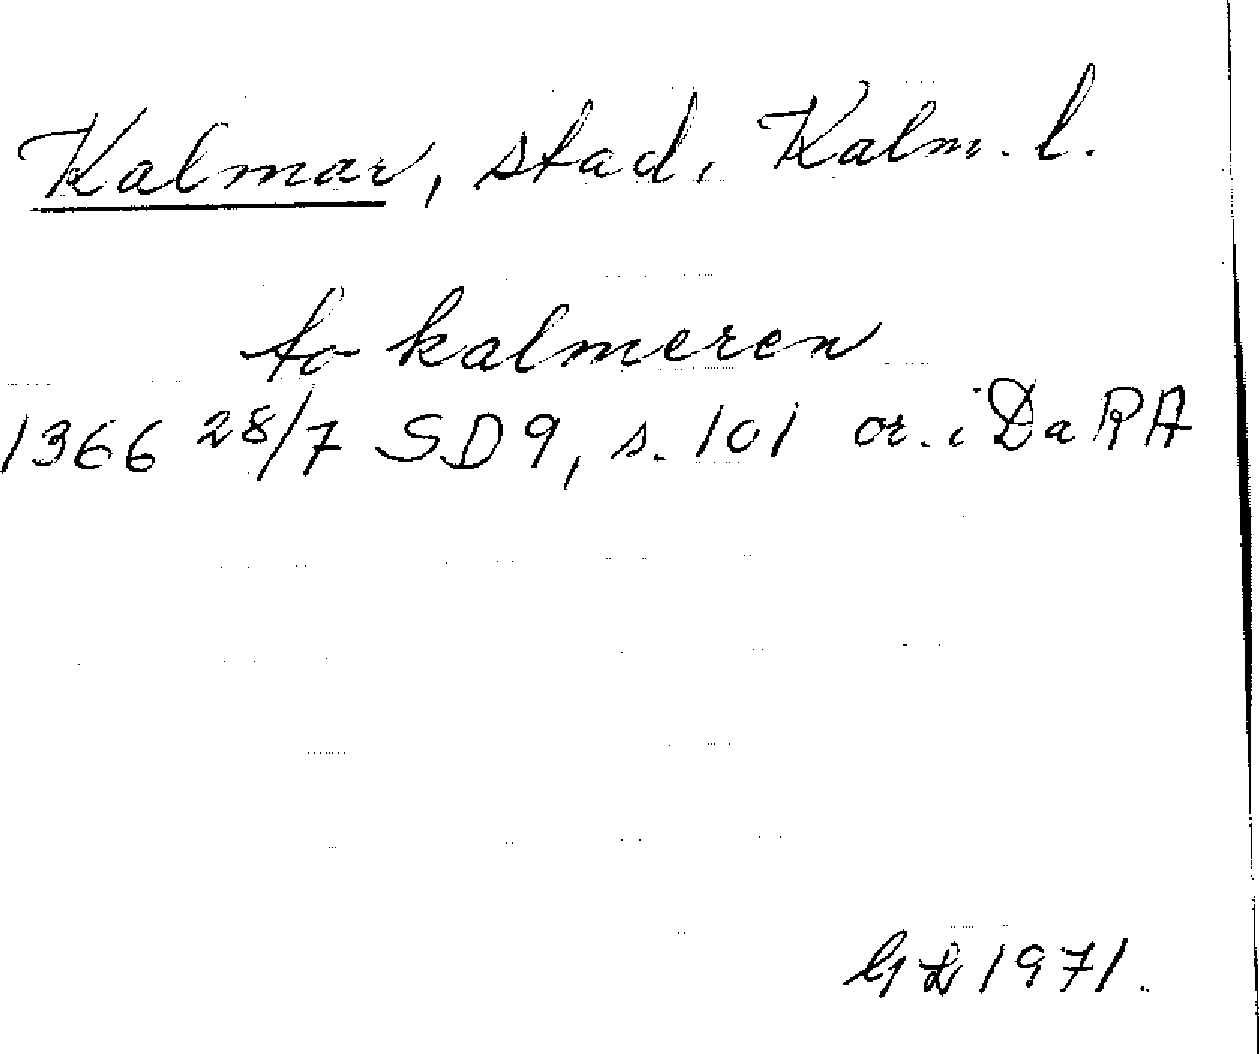 Kalmar, stad, Kalm. l.
to kalmeren
1366 28/7 SD 9, s. 101 or. i DaRA
1971.